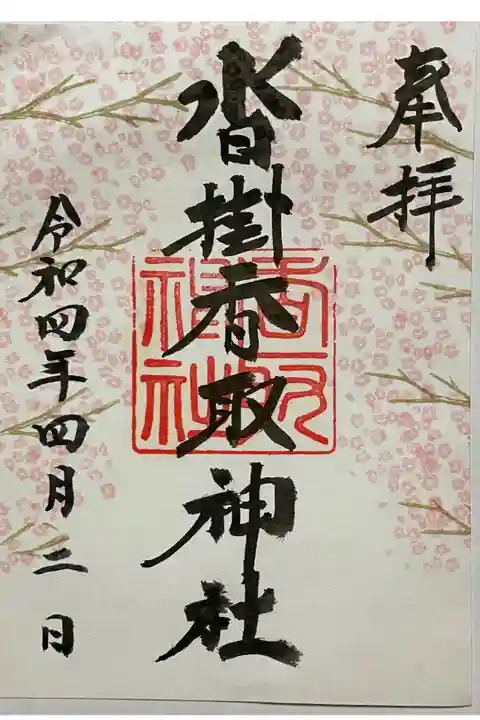 奉拝
沓掛香取神社
香取
神社
令和四年四月二日